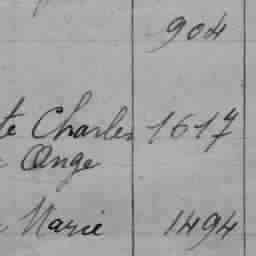 904
te Charles 1617
Ange
Marie 1494